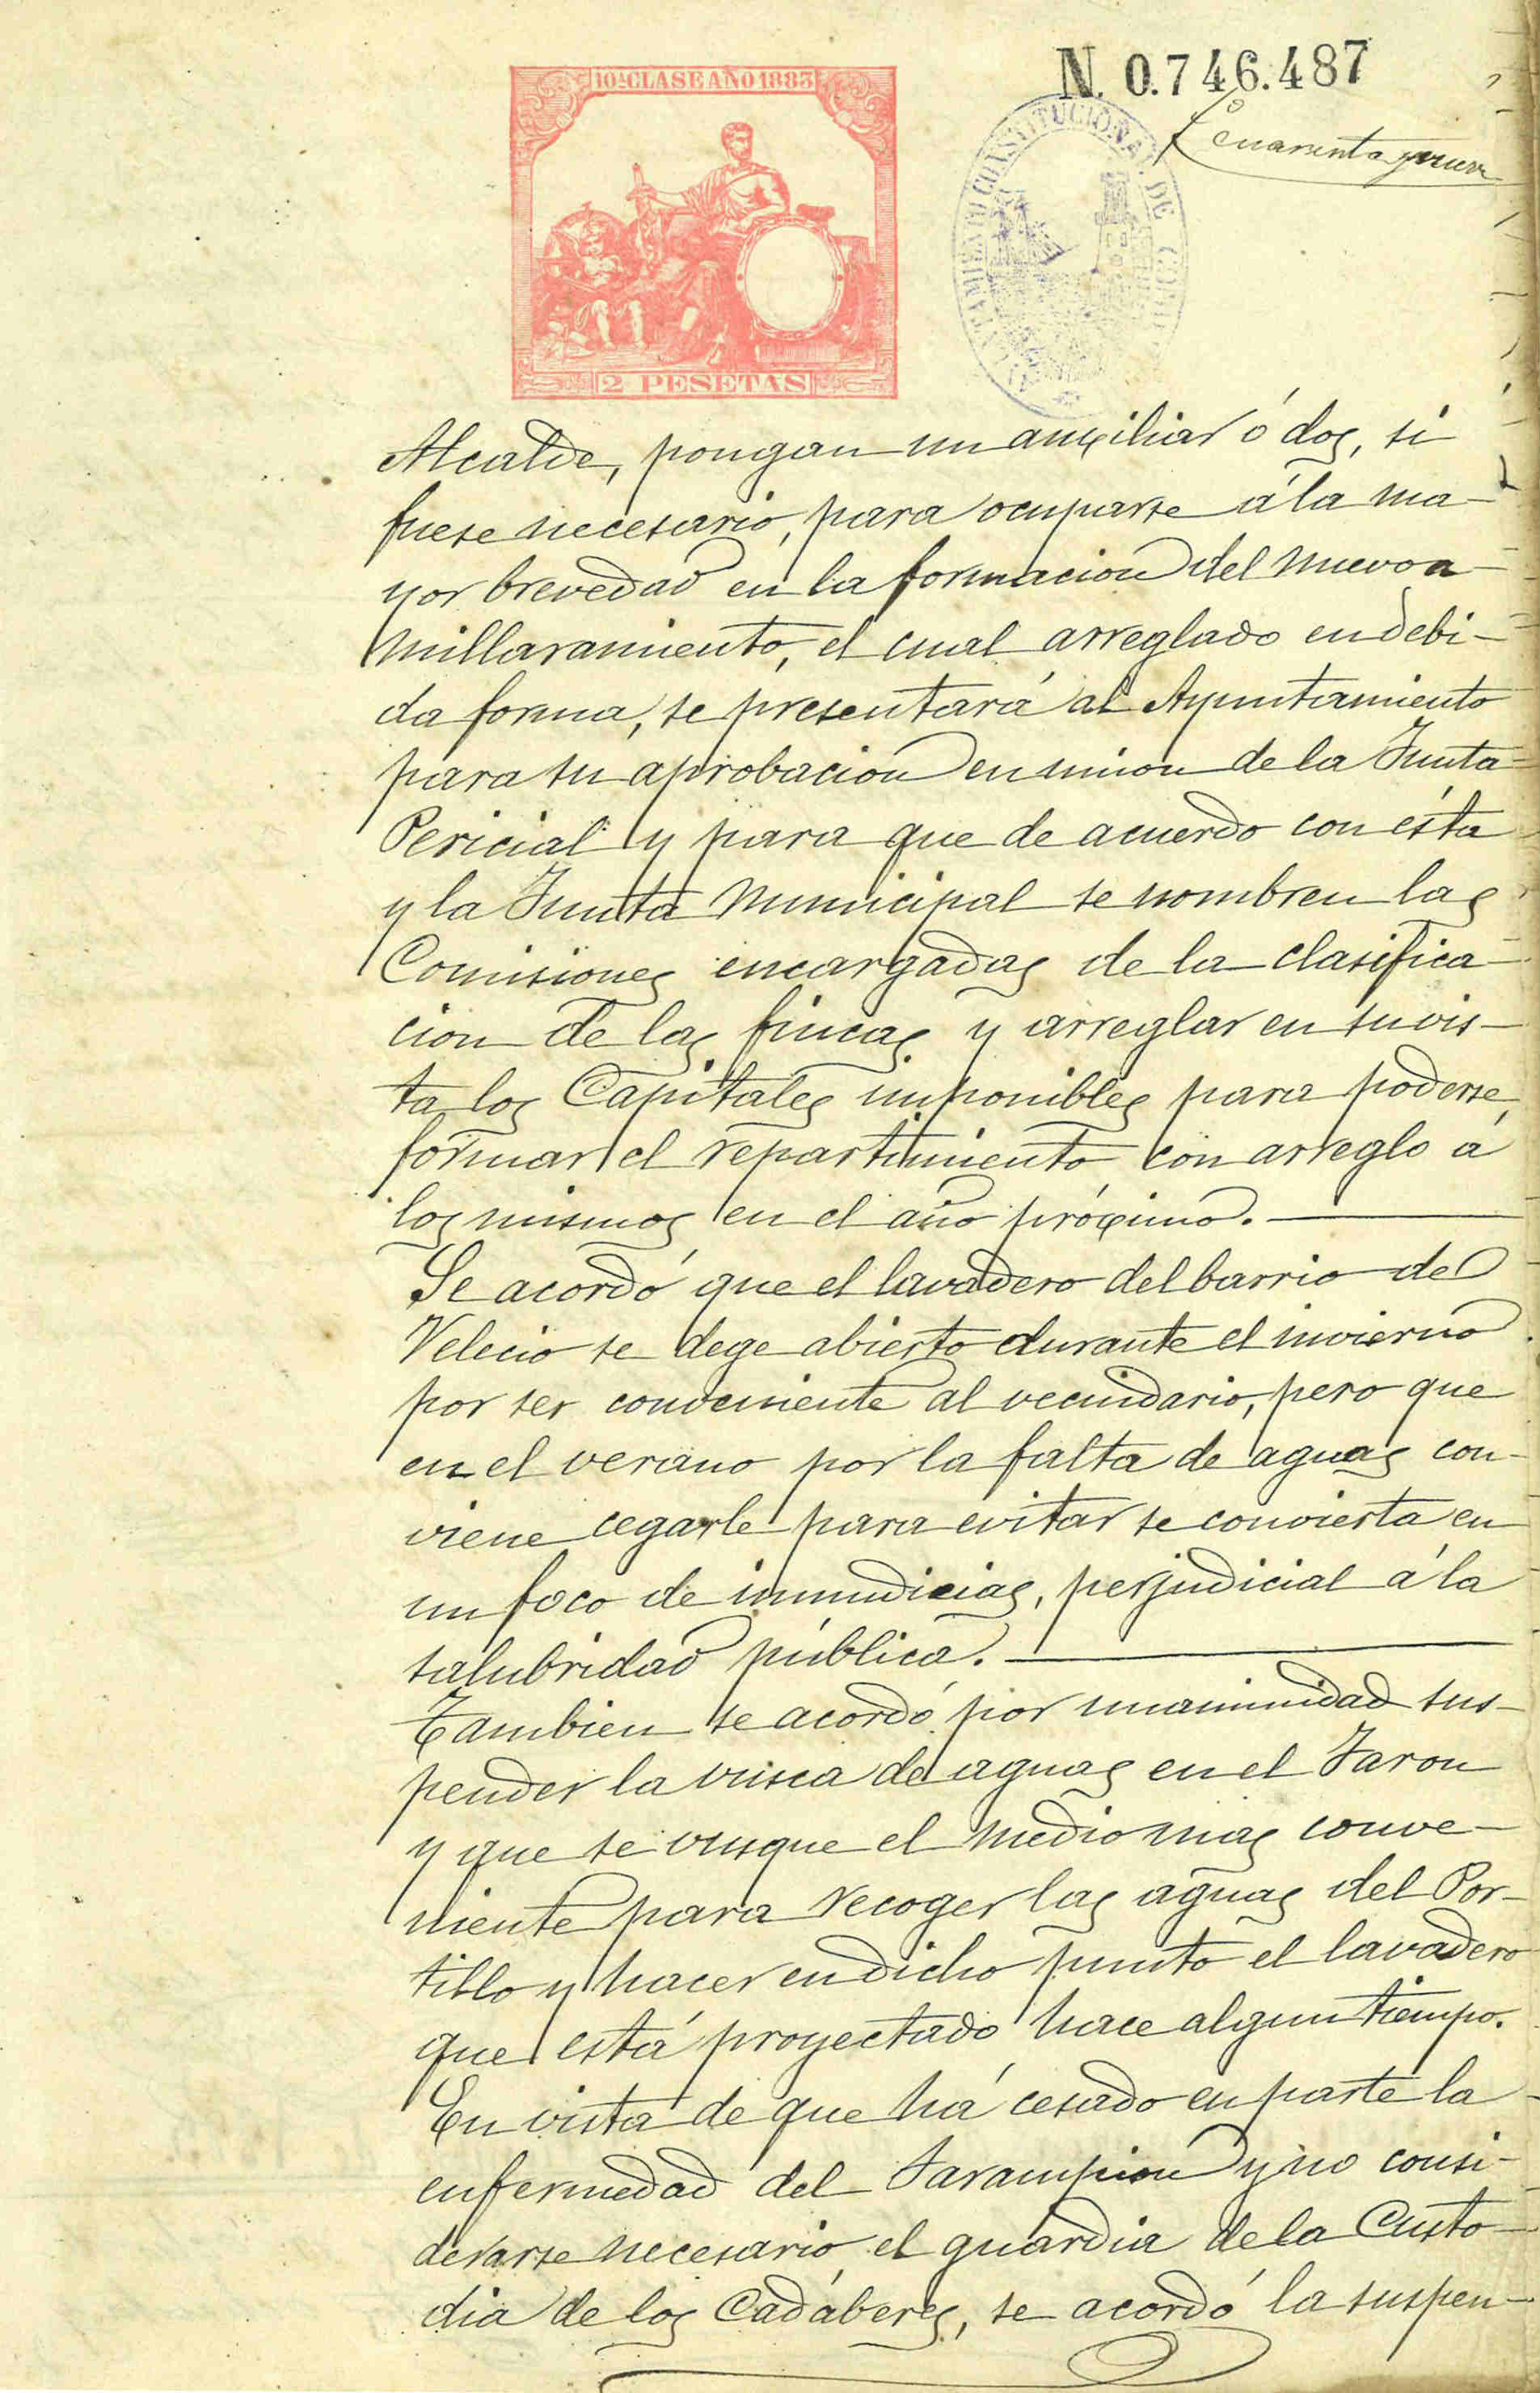 10ª CLASE AÑO 1883
N. 0.746.487
cuarenta y nueve
AYUNTAMIENTO CONSTITUCIONAL DE
2 PESETAS
Alcalde, pongan un auxiliar ó dos, si
fuese necesario, para ocuparse á la ma-
yor brevedad en la formacion del nuevo a-
millaramiento, el cual arreglado en debi-
da forma, se presentará al Ayuntamiento
para su aprobacion en union de la Junta
Pericial y para que de acuerdo con ésta
y la Junta Municipal se nombren las
Comisiones encargadas de la clasifica-
cion de las fincas y arreglar en su vis-
ta los Capitales imponibles para poderse
formar el repartimiento con arreglo á
los mismos en el año próximo.
Se acordó que el lavadero del barrio de
Velecio se dege abierto durante el invierno
por ser conveniente al vecindario, pero que
en el verano por la falta de aguas con-
viene cegarle para evitar se convierta en
un foco de inmundicias, perjudicial á la
salubridad pública.
Tambien se acordó por unanimidad sus-
pender la vusca de aguas en el Jaron
y que se vusque el medio mas conve-
niente para recoger las aguas del Por-
tillo y hacer en dicho punto el lavadero
que está proyectado hace algun tiempo.
En vista de que há cesado en parte la
enfermedad del Sarampion y no consi-
derarse necesario el guardia de la Custo-
dia de los Cadáberes, se acordó la suspen-